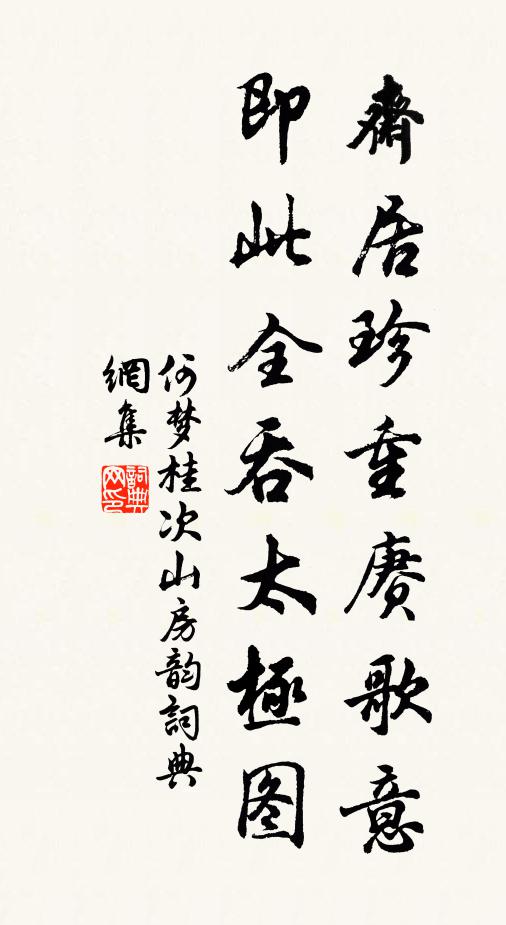 齋居珍重賡歌意
即此全吞太極图
何梦桂次山房韵詞典
網集
詞典
网印